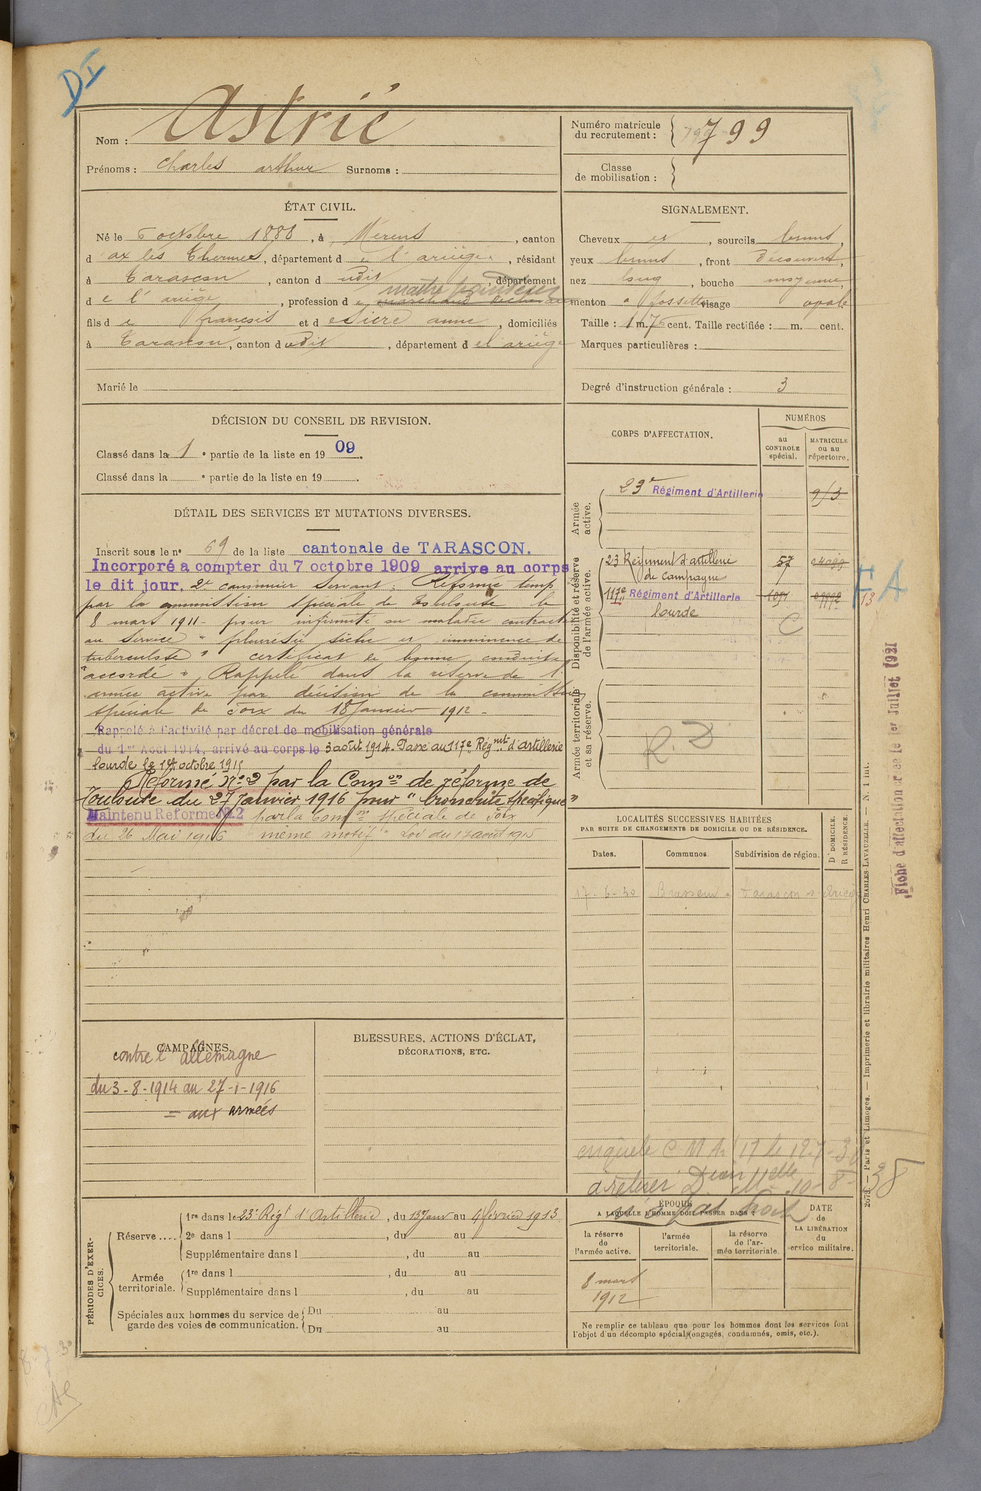 DX
Nom : Astrié
Prénoms : Charles arthur Surnoms :
Numéro matricule du recrutement : 799
Classe de mobilisation :
ÉTAT CIVIL.
Né le 6 octobre 1888, à Mérens, canton
d'ax les Thermes, département de l'ariège, résidant
à Tarascon, canton dudit, département
de l'ariège, profession de maître
fils de françois et de Sicre anne, domiciliés
à Tarascon, canton dudit, département de l'ariège
Marié le
SIGNALEMENT.
Cheveux et, sourcils bruns,
yeux bruns, front découvert,
nez long, bouche moyenne,
menton à fossette visage ovale
Taille : 1 m. 75 cent. Taille rectifiée : m. cent.
Marques particulières :
Degré d'instruction générale : 3
DÉCISION DU CONSEIL DE REVISION.
Classé dans la 1e partie de la liste en 1909.
Classé dans la e partie de la liste en 19
DÉTAIL DES SERVICES ET MUTATIONS DIVERSES.
Inscrit sous le no 69 de la liste cantonale de TARASCON.
Incorporé à compter du 7 octobre 1909 arrive au corps
le dit jour, 2e canonnier servant, Réformé temp
par la commission spéciale de Toulouse le
8 mars 1911 - pour infirmité ou maladie contractée
au service " pleurésie sèche et imminence de
tuberculose " certificat de bonne conduite
"accordé". Rappelé dans la réserve de l'
armée active par décision de la commission
spéciale de Foix du 18 janvier 1912 -
Rappelé à l'activité par décret de mobilisation générale
du 1er Août 1914, arrivé au corps le 3 août 1914. Passé au 117e Régmt d'artillerie
lourde le 1er octobre 1915
Réformé No 2 par la Comon de réforme de
Toulouse du 27 janvier 1916 pour " bronchite spécifique "
Maintenu Réformé No 2 par la Comon spéciale de Foix
du 26 Mai 1916 même motif. Loi du 17 août 1915
CORPS D'AFFECTATION.
NUMÉROS
au CONTROLE spécial.
MATRICULE ou au répertoire.
Armée active.
23e Régiment d'Artillerie
Disponibilité et réserve de l'armée active.
23 Régiment d'artillerie 57
de Campagne
117e Régiment d'Artillerie
lourde
C
Armée territoriale et sa réserve.
R. D
FA
Fiche d'affectation créée le 1er Juillet 1921
LOCALITÉS SUCCESSIVES HABITÉES
PAR SUITE DE CHANGEMENTS DE DOMICILE OU DE RÉSIDENCE.
Dates.
Communes.
Subdivision de région.
D. DOMICILE. R. RÉSIDENCE.
17-6-30 Tarascon s/ Ariège
CAMPAGNES.
contre l'allemagne
du 3-8-1914 au 27-1-1916
= aux armées
BLESSURES, ACTIONS D'ÉCLAT,
DÉCORATIONS, ETC.
enquête C M A
PÉRIODES D'EXERCICES.
Réserve....
1re dans le 23e Régt d'Artillerie, du 18 janv au 4 février 1913
2e dans l , du au
Supplémentaire dans l , du au
Armée territoriale.
1re dans l , du au
Supplémentaire dans l , du au
Spéciales aux hommes du service de garde des voies de communication.
Du au
Du au
ÉPOQUE
A LAQUELLE L'HOMME DOIT PASSER DANS :
la réserve de l'armée active.
l'armée territoriale.
la réserve de l'armée territoriale.
DATE de LA LIBÉRATION du service militaire.
8 mars
1912
Ne remplir ce tableau que pour les hommes dont les services font
l'objet d'un décompte spécial (engagés, condamnés, omis, etc.).
— Paris et Limoges. — Imprimerie et librairie militaires Henri CHARLES-LAVAUZELLE. — N. 1 int.